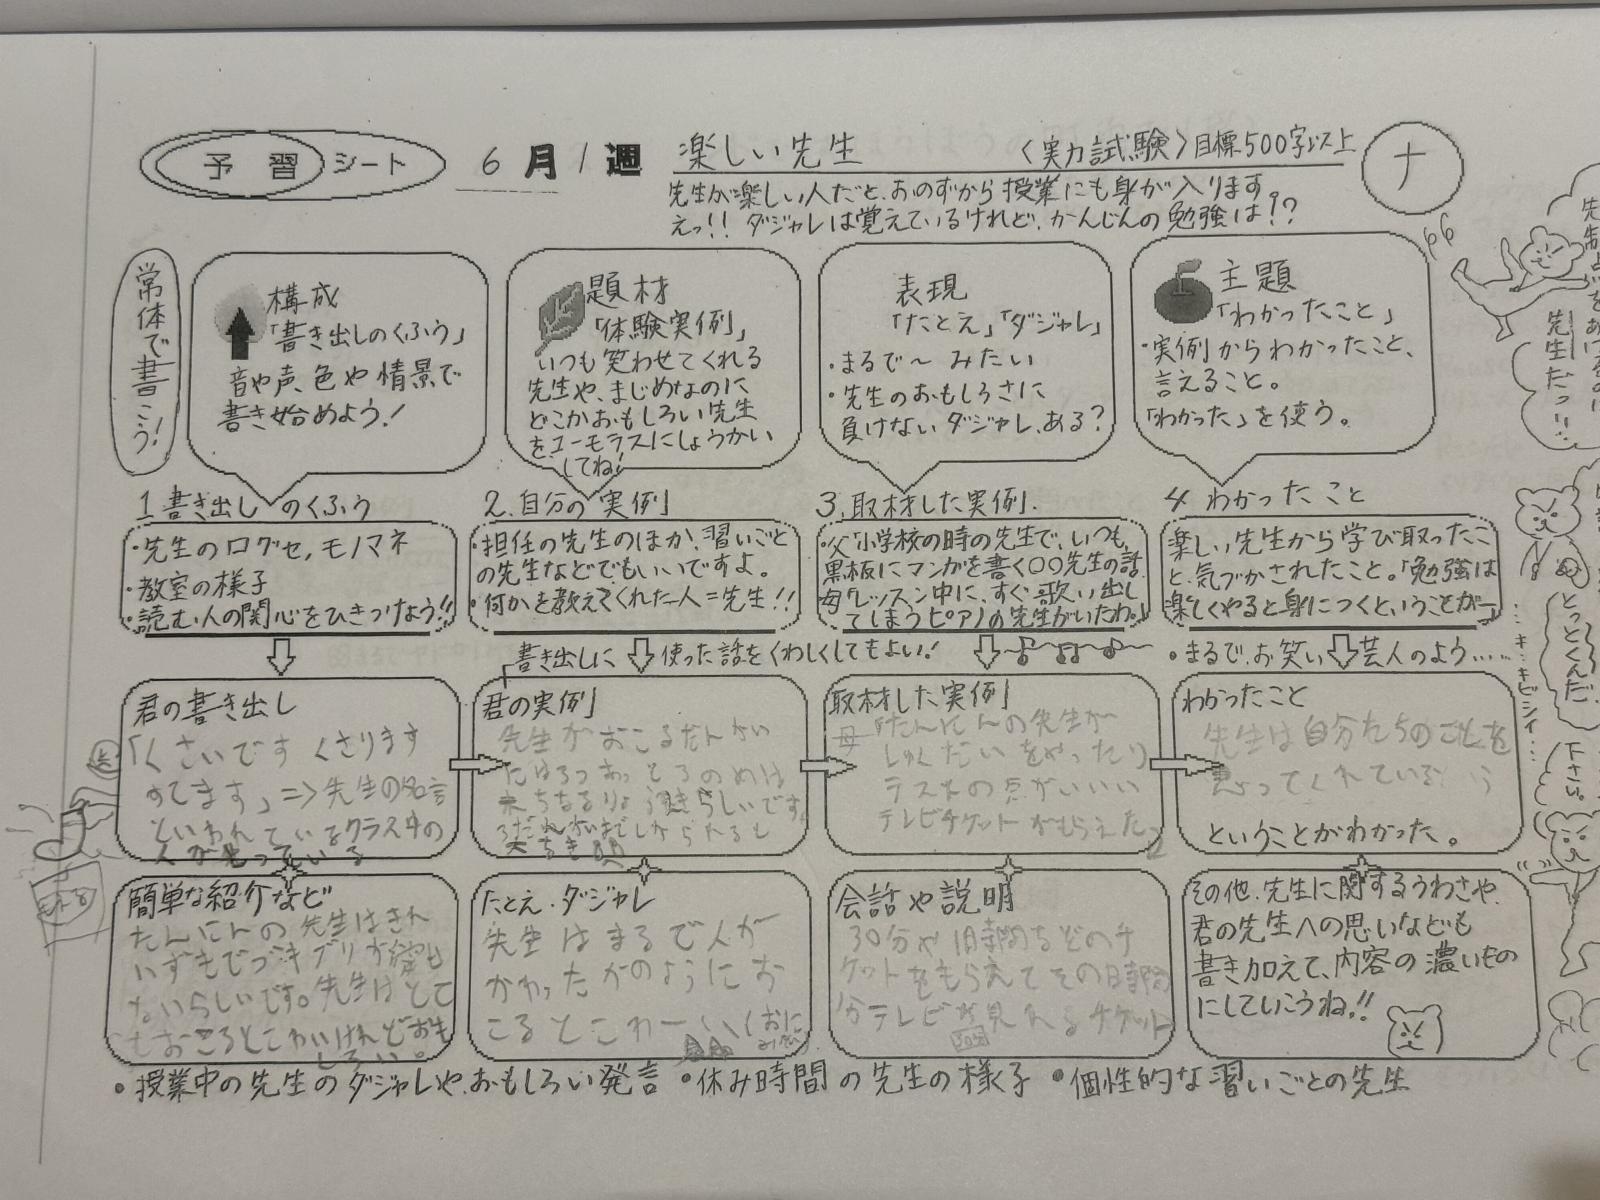 予習シート
6月1週
楽しい先生
〈実力試験〉目標500字以上
ナ
先生が楽しい人だと、おのずから授業にも身が入ります。
えっ!! ダジャレは覚えているけれど、かんじんの勉強は!?
常体で書こう!
構成
「書き出しのくふう」
音や声、色や情景で
書き始めよう!
題材
「体験実例」
いつも笑わせてくれる
先生や、まじめなのに
どこかおもしろい先生
をユーモラスにしょうかい
してね!
表現
「たとえ」「ダジャレ」
・まるで〜みたい
・先生のおもしろさに
負けないダジャレ、ある?
主題
「わかったこと」
・実例からわかったこと、
言えること。
「わかった」を使う。
1 書き出しのくふう
・先生の口グセ,モノマネ
・教室の様子
・読む人の関心をひきつけよう!!
2.自分の実例
・担任の先生のほか、習いごと
の先生などでもいいですよ。
・何かを教えてくれた人=先生!!
3.取材した実例.
・父「小学校の時の先生で、いつも
黒板にマンガを書く〇〇先生の話
母「レッスン中に、すぐ歌い出し
てしまうピアノの先生がいたわ。」
4 わかったこと
楽しい先生から学び取ったこ
と、気づかされたこと。「勉強は
楽しくやると身につくということが―」
書き出しに使った話をくわしくしてもよい!
・まるで、お笑い芸人のよう……
君の書き出し
「くさいです くさります
すてます」⇒先生の名言
といわれているクラス中の
人がもっている
君の実例
先生がおこるだんかい
取材した実例
母「たんにんの先生が
しゅくだいをやったり
テストの点がいい
テレビチケットがもらえた
わかったこと
先生は自分たちのことを
思ってくれている
ということがわかった。
簡単な紹介など
たんにんの先生はきれ
いずきで
ないらしいです。先生はとて
もおこるとこわいけれどおも
しろい。
たとえ・ダジャレ
先生はまるで人が
かわったかのようにお
こるとこわーい
会話や説明
30分や1時間などのチ
ケットをもらえてその時間
分テレビが見れるチケット
その他、先生に関するうわさや、
君の先生への思いなども
書き加えて、内容の濃いもの
にしていこうね!!
・授業中の先生のダジャレや、おもしろい発言 ・休み時間の先生の様子 ・個性的な習いごとの先生
先生だっ!!
…キ…キビシイ…
とっとくんだ
下さい。